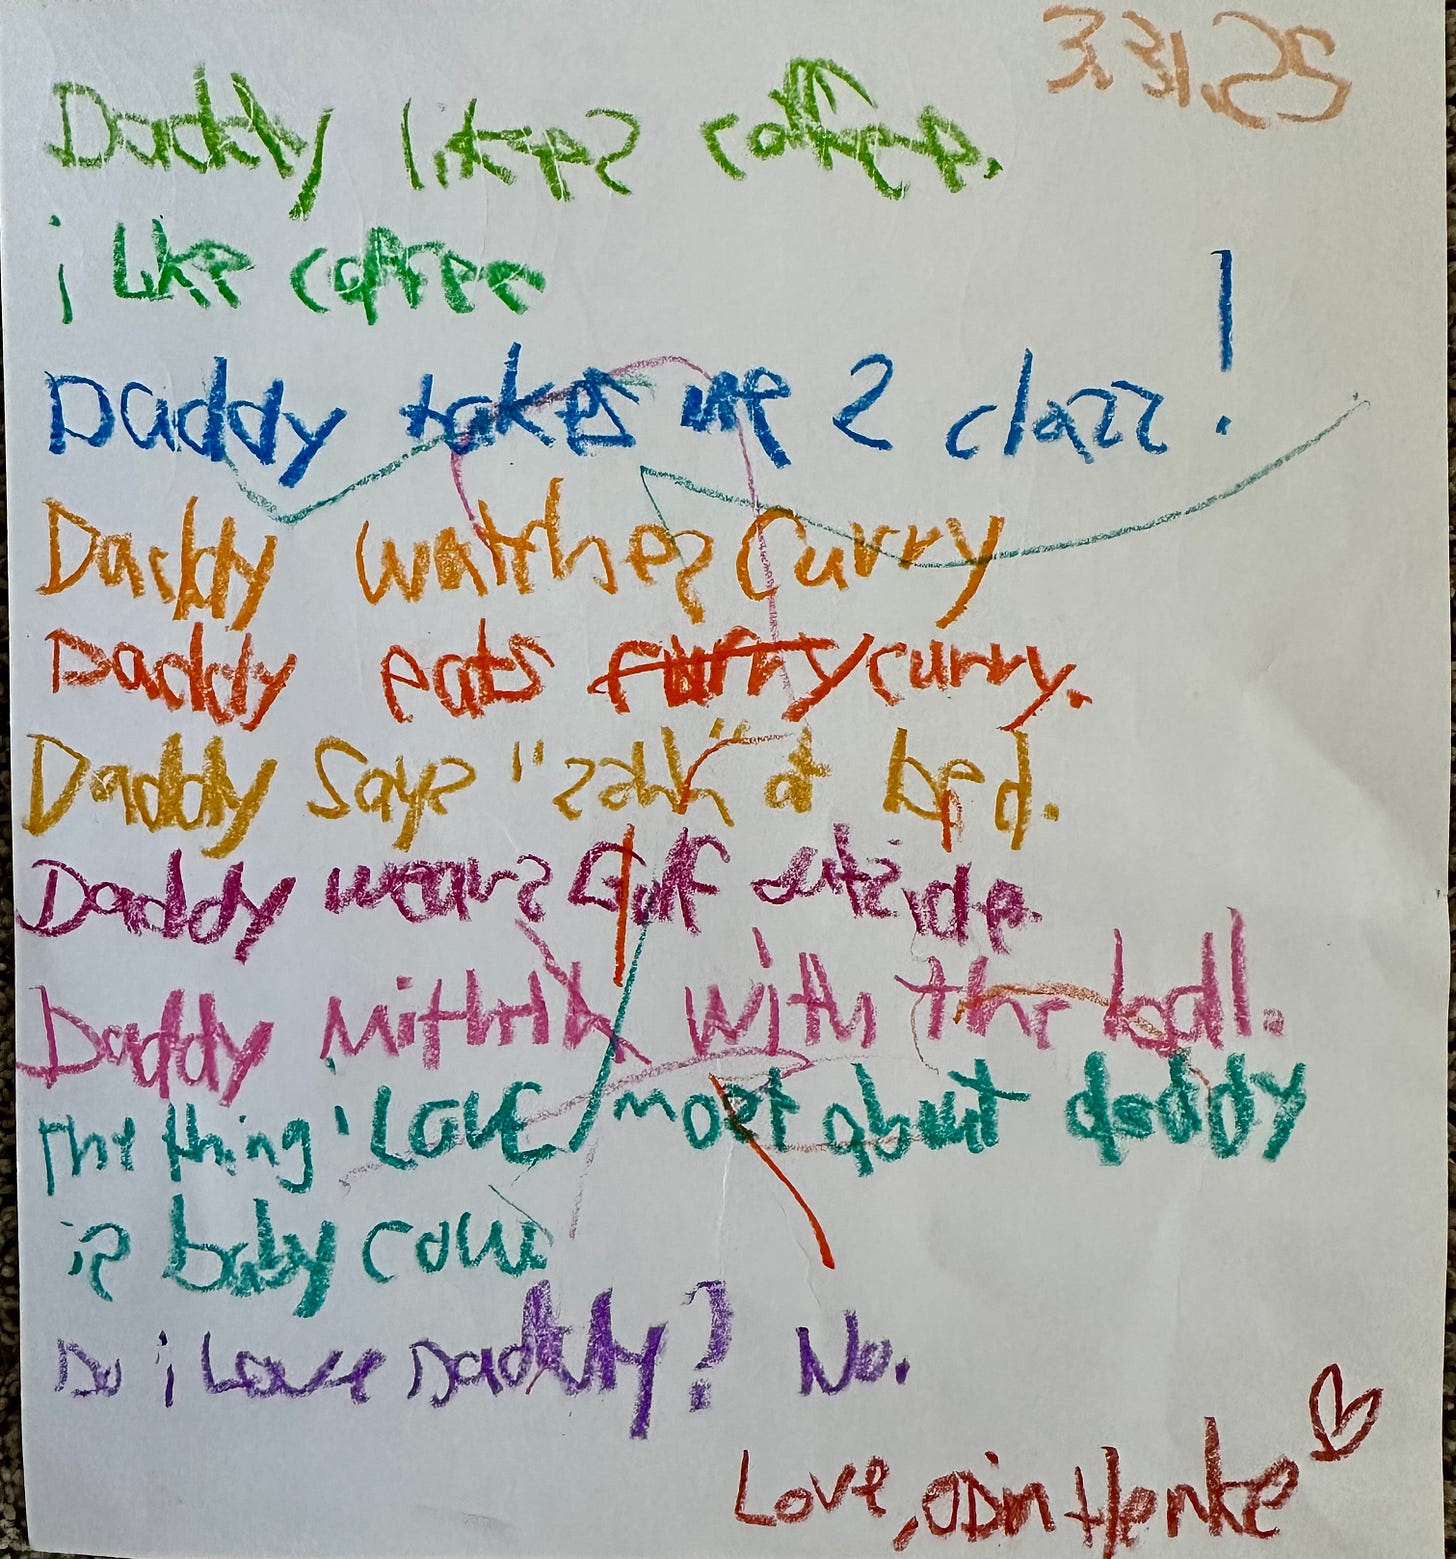 3.31.25
Daddy likes coffee.
i like coffee
Daddy takes me 2 clazz!
Daddy watches Curry
Daddy eats furry curry.
Daddy Says "zahh" at bed.
Daddy wears Golf outside.
Daddy with the ball.
The thing i LOVE most about daddy
is baby cow
Do i Love Daddy? No.
Love, ODin Henke